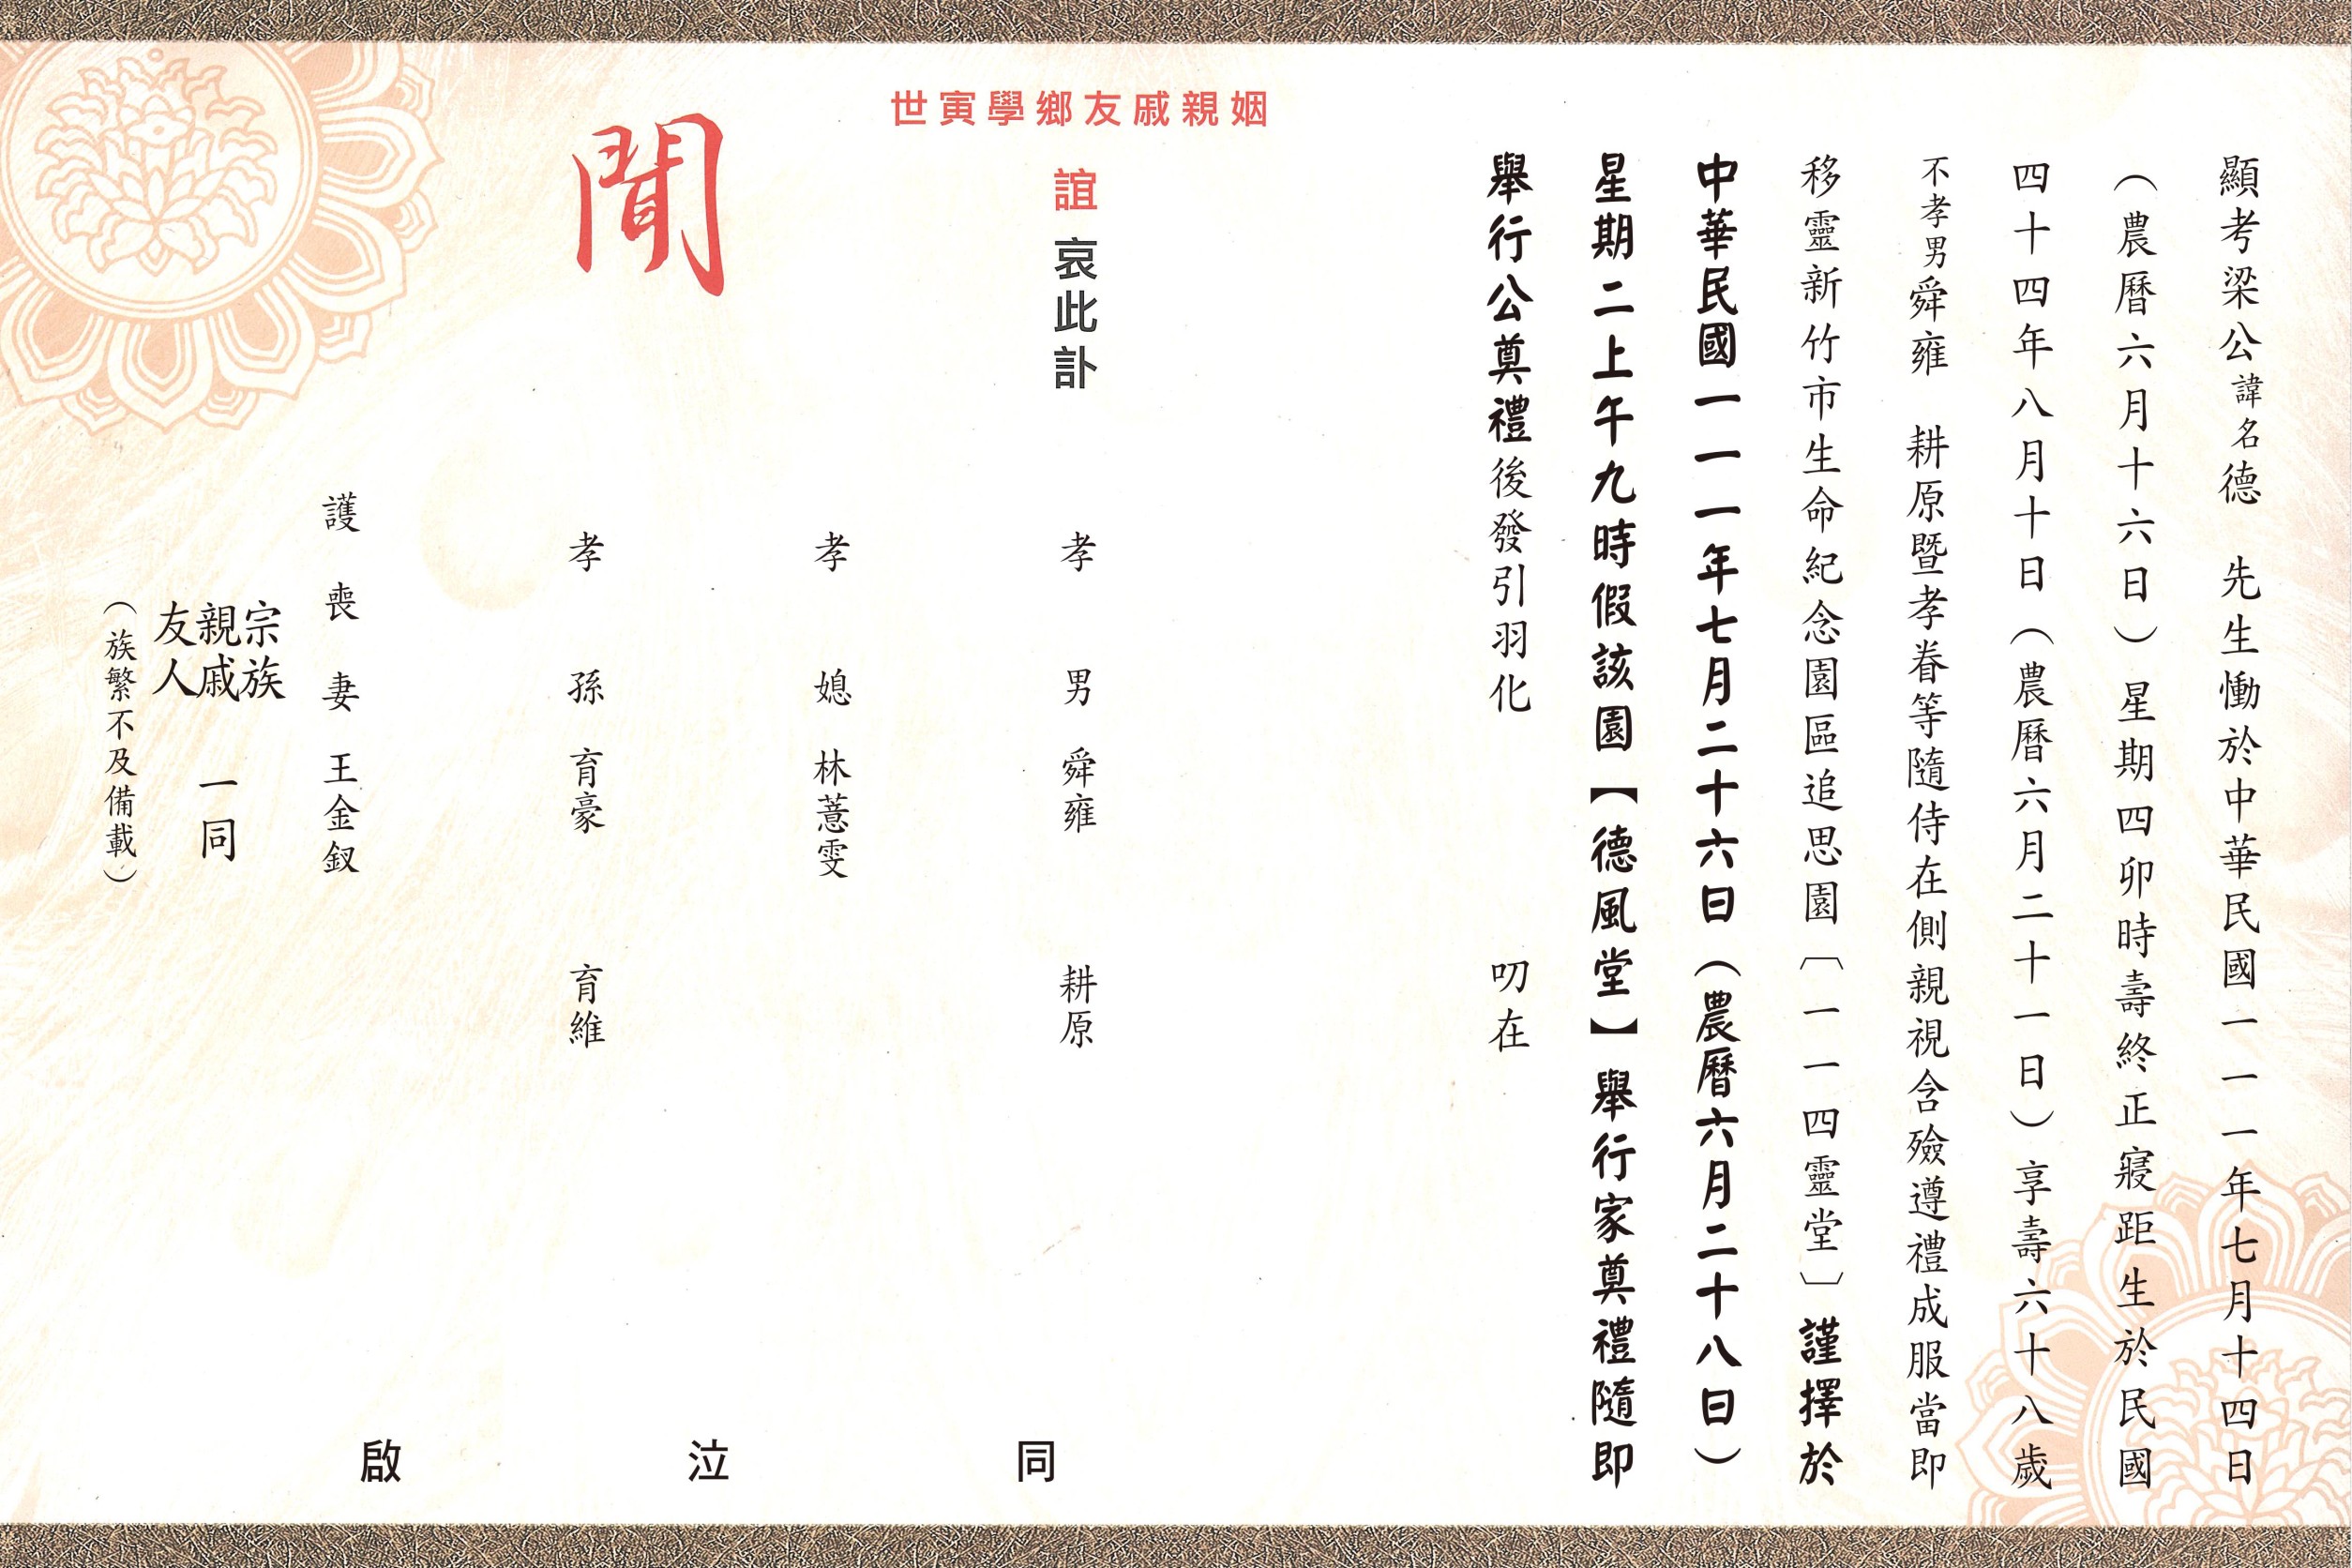 顯考梁公諱名德　先生慟於中華民國一一一年七月十四日
（農曆六月十六日）星期四卯時壽終正寢距生於民國
四十四年八月十日（農曆六月二十一日）享壽六十八歲
不孝男舜雍　耕原暨孝眷等隨侍在側親視含殮遵禮成服當即
移靈新竹市生命紀念園區追思園〔一一四靈堂〕謹擇於
中華民國一一一年七月二十六日（農曆六月二十八日）
星期二上午九時假該園【德風堂】舉行家奠禮隨即
舉行公奠禮後發引羽化　叨在
姻親戚友鄉學寅世
誼 哀此訃
聞
孝男 舜雍 耕原
孝媳 林薏雯
孝孫 育豪 育維
護喪妻 王金釵
宗族
親戚 一同
友人
（族繁不及備載）
同泣啟